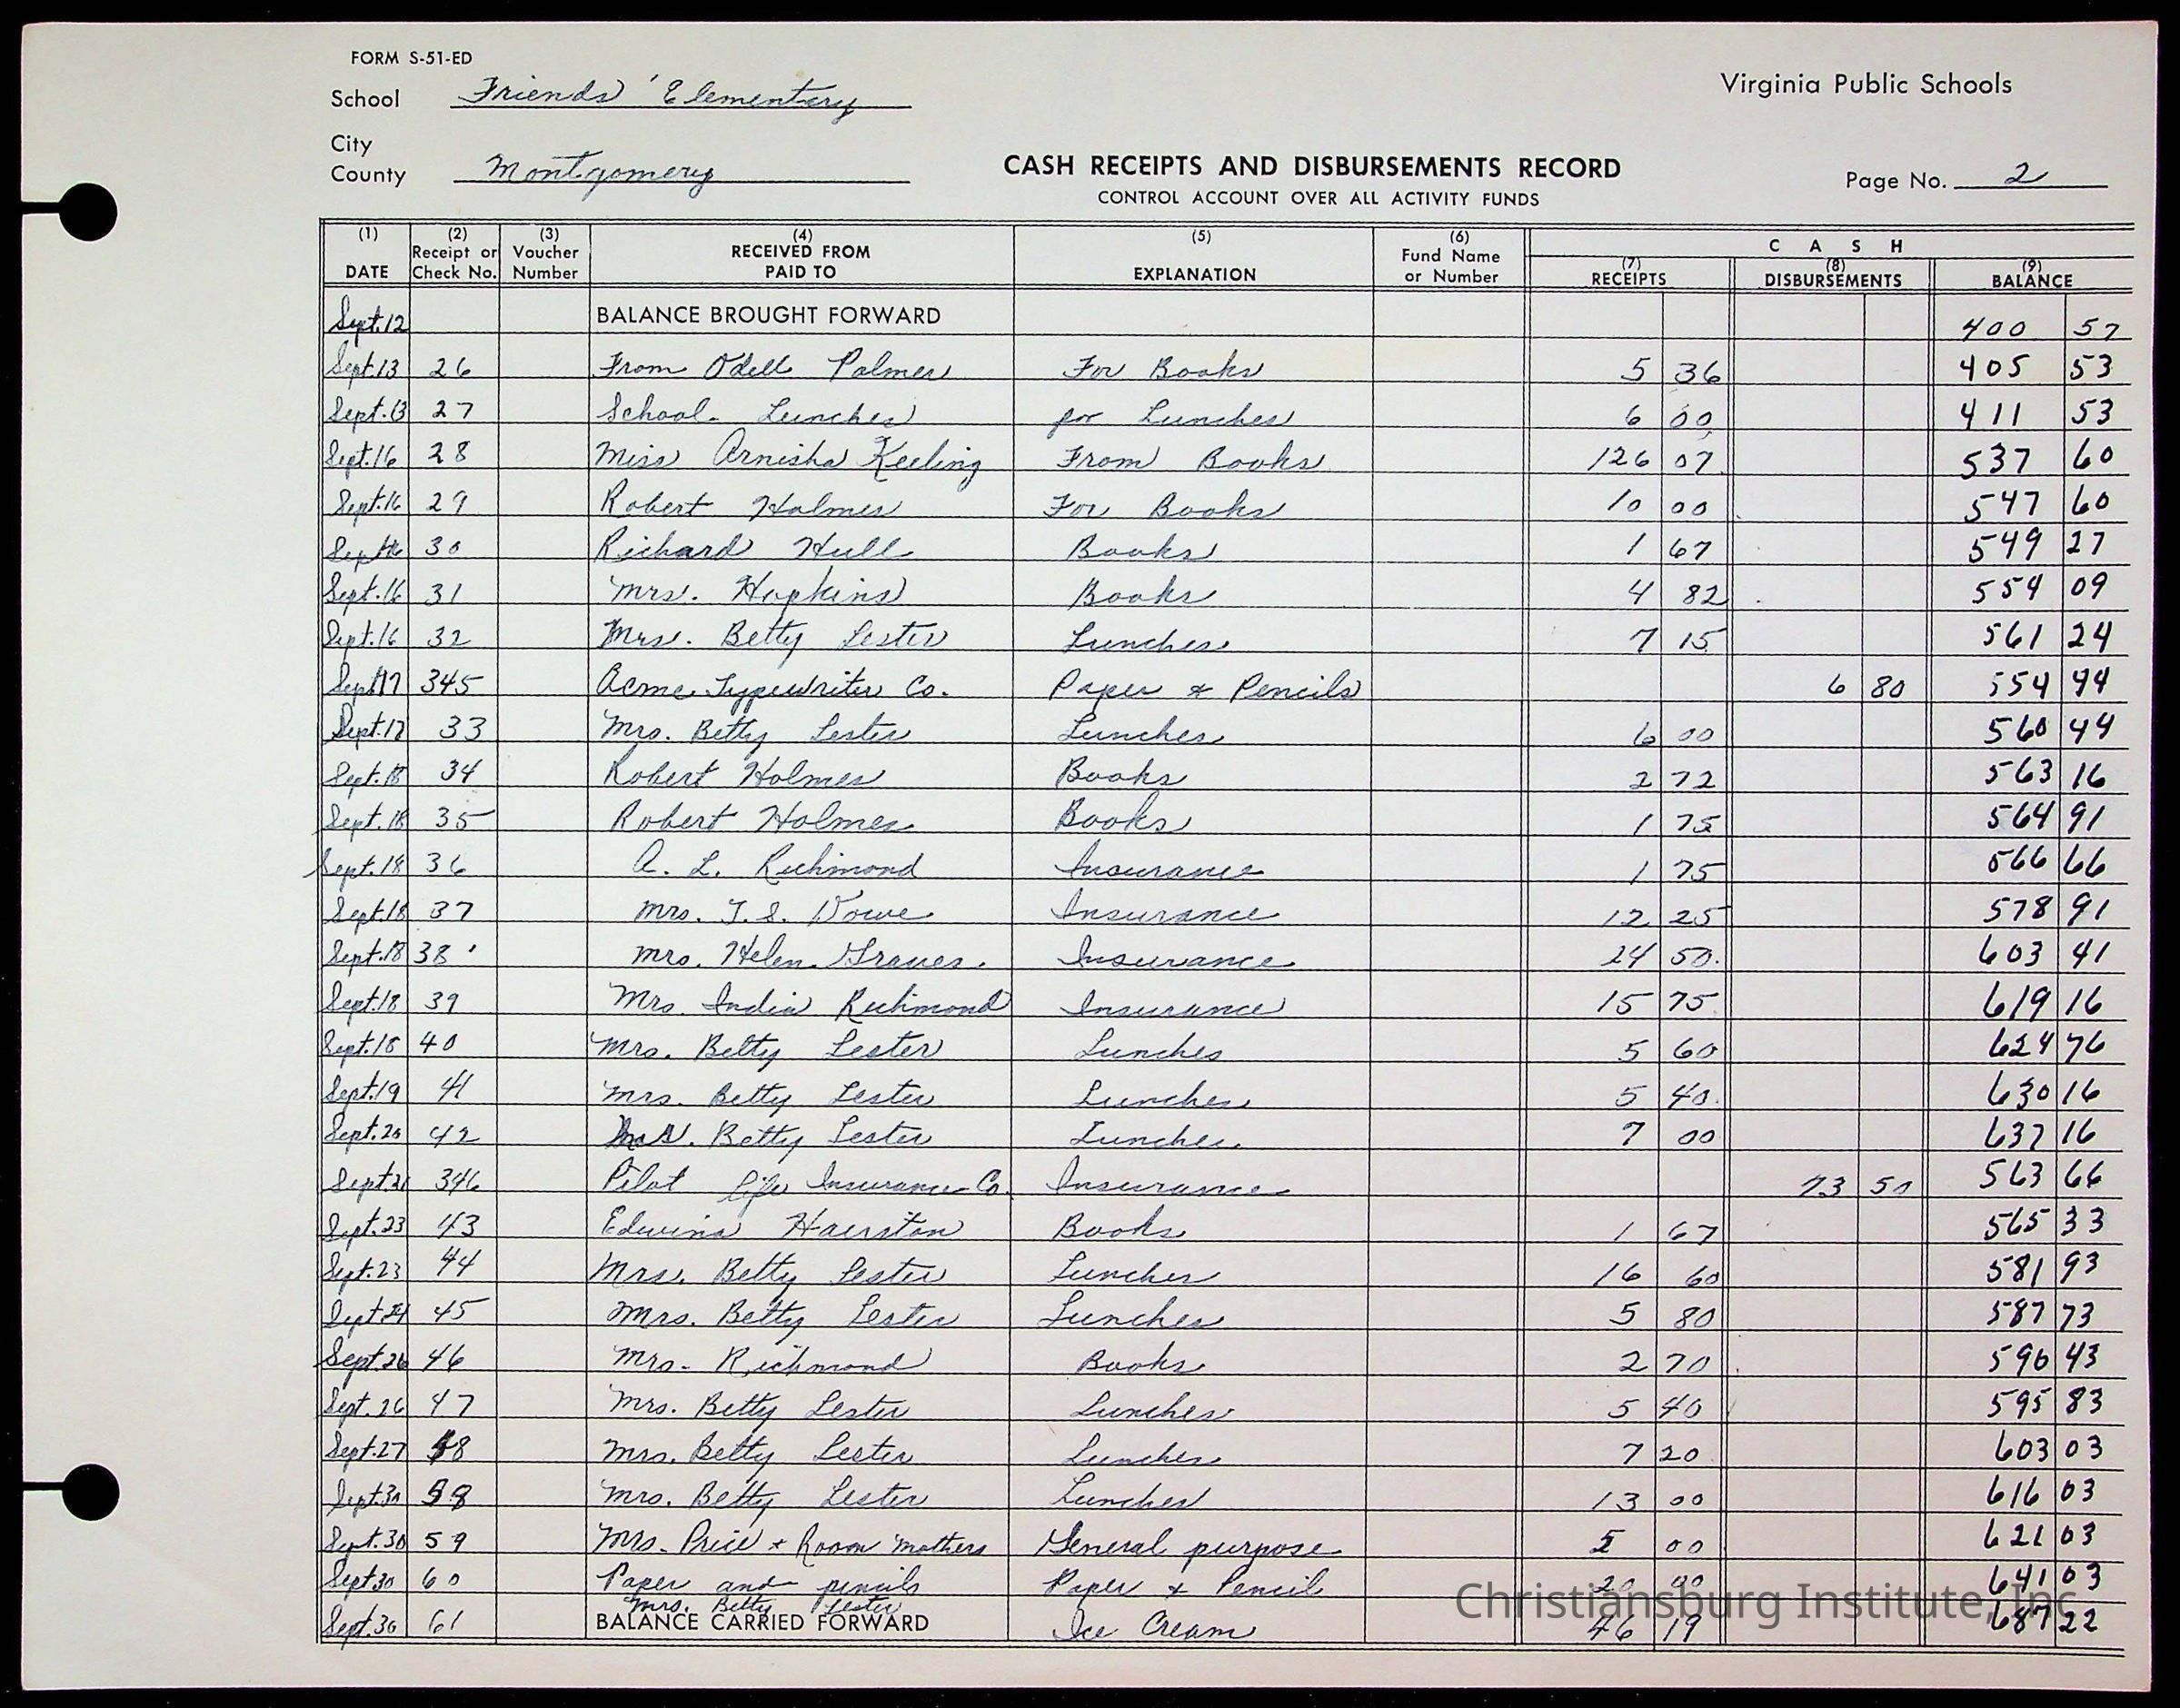 FORM S-51-ED
School Friends' Elementary
Virginia Public Schools
City
County Montgomery
CASH RECEIPTS AND DISBURSEMENTS RECORD
CONTROL ACCOUNT OVER ALL ACTIVITY FUNDS
Page No. 2
(1) DATE (2) Receipt or Check No. (3) Voucher Number (4) RECEIVED FROM PAID TO (5) EXPLANATION (6) Fund Name or Number CASH (7) RECEIPTS (8) DISBURSEMENTS (9) BALANCE
Sept. 12 BALANCE BROUGHT FORWARD 400 57
Sept. 13 26 From Odell Palmer For Books 5 36 405 53
Sept. 13 27 School Lunches for Lunches 6 00 411 53
Sept. 16 28 Miss Arnisha Keeling From Books 126 07 537 60
Sept. 16 29 Robert Holmes For Books 10 00 547 60
Sept. 16 30 Richard Hull Books 1 67 549 27
Sept. 16 31 Mrs. Hopkins Books 4 82 554 09
Sept. 16 32 Mrs. Betty Lester Lunches 7 15 561 24
Sept. 17 345 Acme Typewriter Co. Paper & Pencils 6 80 554 44
Sept. 17 33 Mrs. Betty Lester Lunches 6 00 560 44
Sept. 18 34 Robert Holmes Books 2 72 563 16
Sept. 18 35 Robert Holmes Books 1 75 564 91
Sept. 18 36 A. L. Richmond Insurance 1 75 566 66
Sept. 18 37 Mrs. T. S. Dowe Insurance 12 25 578 91
Sept. 18 38 Mrs. Helen Graves Insurance 24 50 603 41
Sept. 18 39 Mrs. India Richmond Insurance 15 75 619 16
Sept. 18 40 Mrs. Betty Lester Lunches 5 60 624 76
Sept. 19 41 Mrs. Betty Lester Lunches 5 40 630 16
Sept. 20 42 Mrs. Betty Lester Lunches 7 00 637 16
Sept. 21 346 Pilot life Insurance Co. Insurance 73 50 563 66
Sept. 23 43 Edwina Hairston Books 1 67 565 33
Sept. 23 44 Mrs. Betty Lester Lunches 16 60 581 93
Sept. 24 45 Mrs. Betty Lester Lunches 5 80 587 73
Sept. 26 46 Mrs. Richmond Books 2 70 590 43
Sept. 26 47 Mrs. Betty Lester Lunches 5 40 595 83
Sept. 27 48 Mrs. Betty Lester Lunches 7 20 603 03
Sept. 30 58 Mrs. Betty Lester Lunches 13 00 616 03
Sept. 30 59 Mrs. Price & Room mothers General purpose 5 00 621 03
Sept. 30 60 Paper and pencils Paper & Pencil 20 00 641 03
Mrs. Betty Lester
Sept. 30 61 BALANCE CARRIED FORWARD Ice Cream 46 19 687 22
Christiansburg Institute, Inc